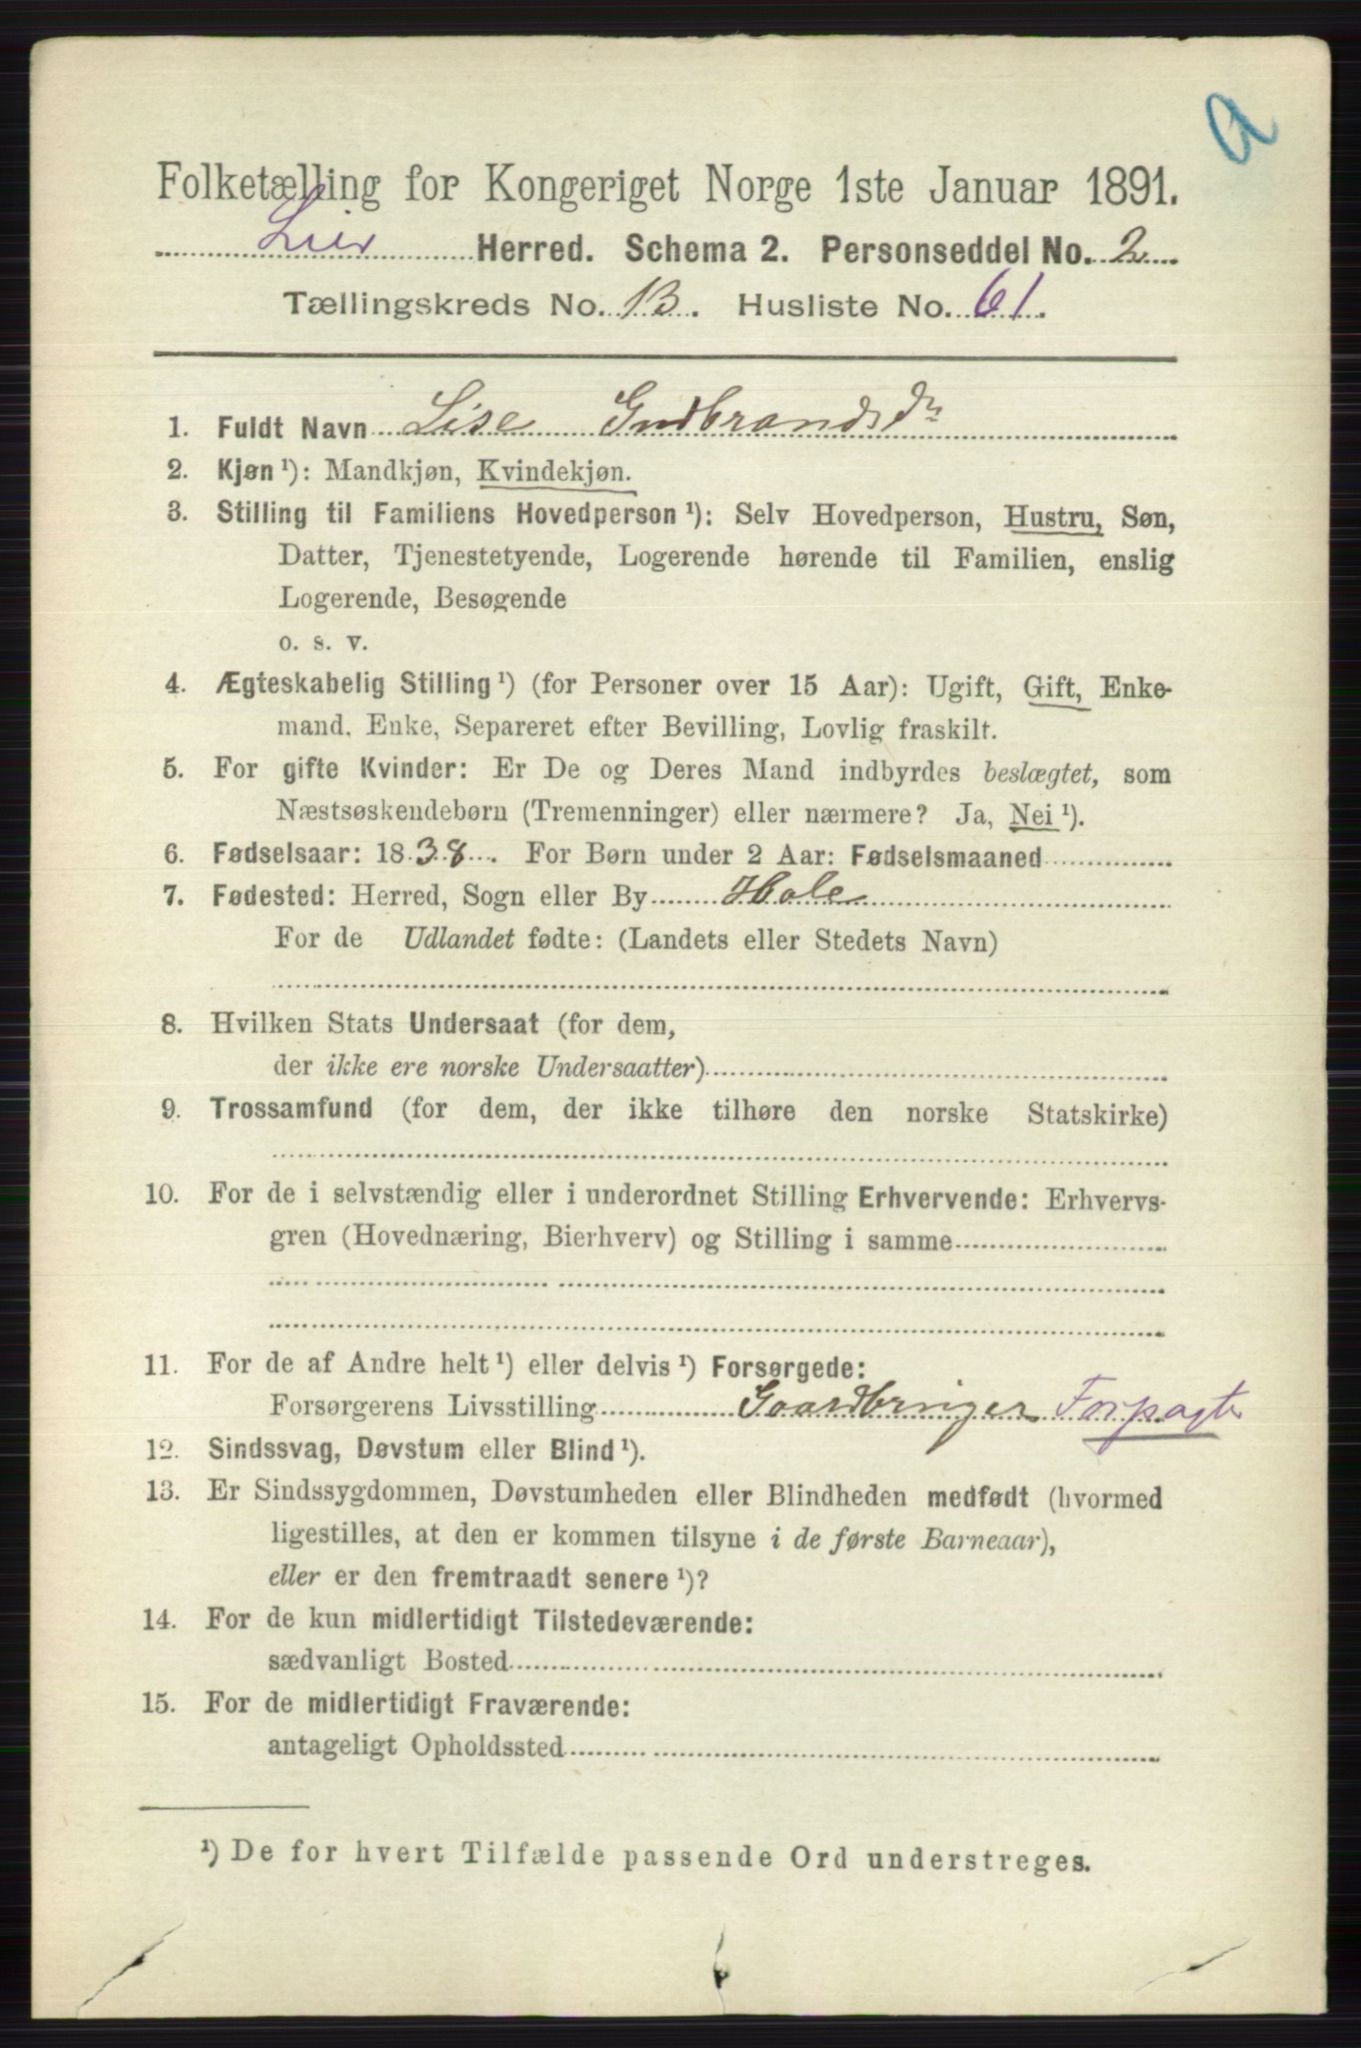 a
Folketælling for Kongeriget Norge 1ste Januar 1891.
Lier Herred. Schema 2. Personseddel No. 2
Tællingskreds No. 13. Husliste No. 61.
1. Fuldt Navn Lise Gudbrandsdr
2. Kjøn ¹): Mandkjøn, Kvindekjøn.
3. Stilling til Familiens Hovedperson ¹): Selv Hovedperson, Hustru, Søn,
Datter, Tjenestetyende, Logerende hørende til Familien, enslig
Logerende, Besøgende
o. s. v.
4. Ægteskabelig Stilling ¹) (for Personer over 15 Aar): Ugift, Gift, Enke-
mand, Enke, Separeret efter Bevilling, Lovlig fraskilt.
5. For gifte Kvinder: Er De og Deres Mand indbyrdes beslægtet, som
Næstsøskendebørn (Tremenninger) eller nærmere? Ja, Nei ¹).
6. Fødselsaar: 1838. For Børn under 2 Aar: Fødselsmaaned
7. Fødested: Herred, Sogn eller By Hole
For de Udlandet fødte: (Landets eller Stedets Navn)
8. Hvilken Stats Undersaat (for dem,
der ikke ere norske Undersaatter)
9. Trossamfund (for dem, der ikke tilhøre den norske Statskirke)
10. For de i selvstændig eller i underordnet Stilling Erhvervende: Erhvervs-
gren (Hovednæring, Bierhverv) og Stilling i samme
11. For de af Andre helt ¹) eller delvis ¹) Forsørgede:
Forsørgerens Livsstilling Gaardbruger Forpagte
12. Sindssvag, Døvstum eller Blind ¹).
13. Er Sindssygdommen, Døvstumheden eller Blindheden medfødt (hvormed
ligestilles, at den er kommen tilsyne i de første Barneaar),
eller er den fremtraadt senere ¹)?
14. For de kun midlertidigt Tilstedeværende:
sædvanligt Bosted
15. For de midlertidigt Fraværende:
antageligt Opholdssted
¹) De for hvert Tilfælde passende Ord understreges.